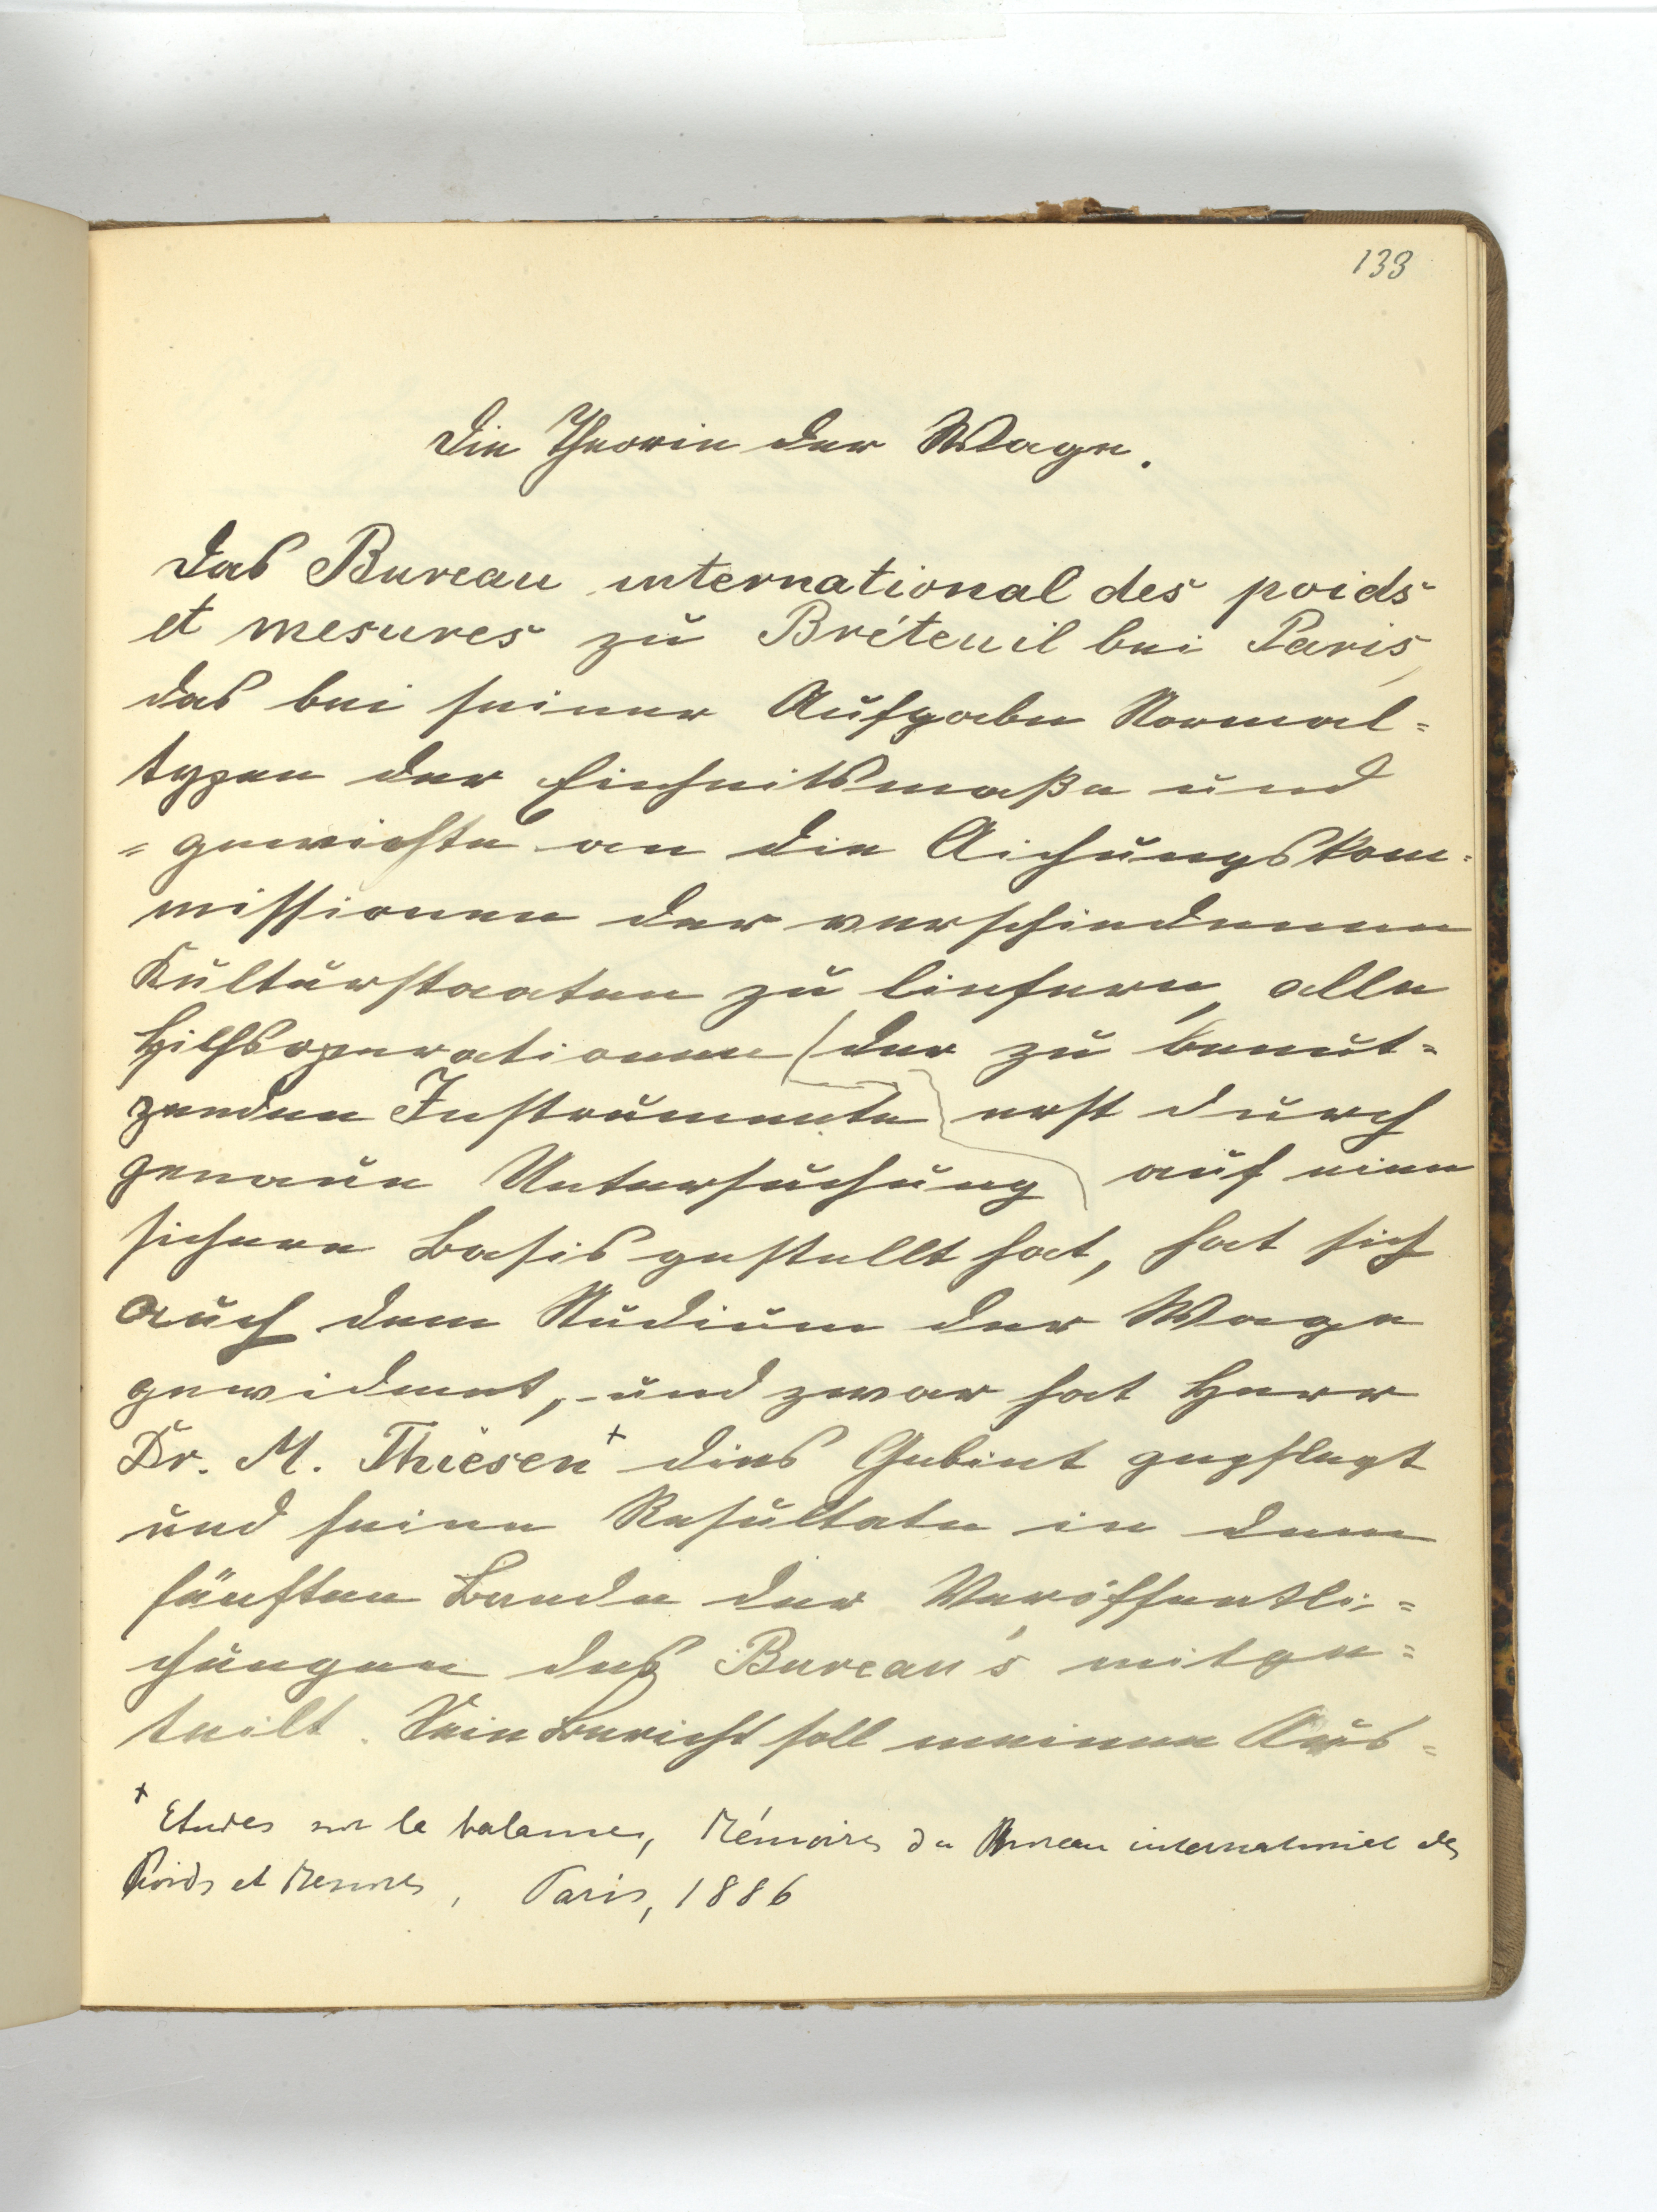 133
Die Theorie der Wage.
Das Bureau international des poids
et mesures zu Bréteuil bei Paris,
das bei seiner Aufgabe Normal=
typen der Einheitsmaße und
=gewichte an die Aichungskom=
missionen der verschiedenen
Kulturstaaten zu liefern, alle
Hilfsoperationen der zu benut=
zenden Instrumente erst durch
genaue Untersuchung auf eine
sichere Basis gestellt hat, hat sich
auch dem Studium der Wage
gewidmet, und zwar hat Herr
Dr. M. Thiesen + dies Gebiet gepflegt
und seine Resultate in dem
fünften Bande der Veröffentli=
chungen des Bureau's mitge=
teilt. Sein Bericht soll meinen Aus=
+ Etudes sur la balance, Mémoires du Bureau international des
Poids et Mesures, Paris, 1886